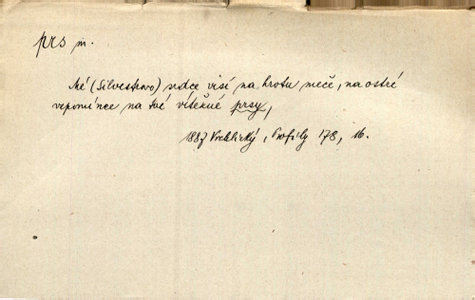 prs m.
Mé (Silvestrovo) srdce visí na hrotu meče, na ostré
vzpomínce na tvé vítězné prsy,
1887 Vrchlický, Profily 178, 16.